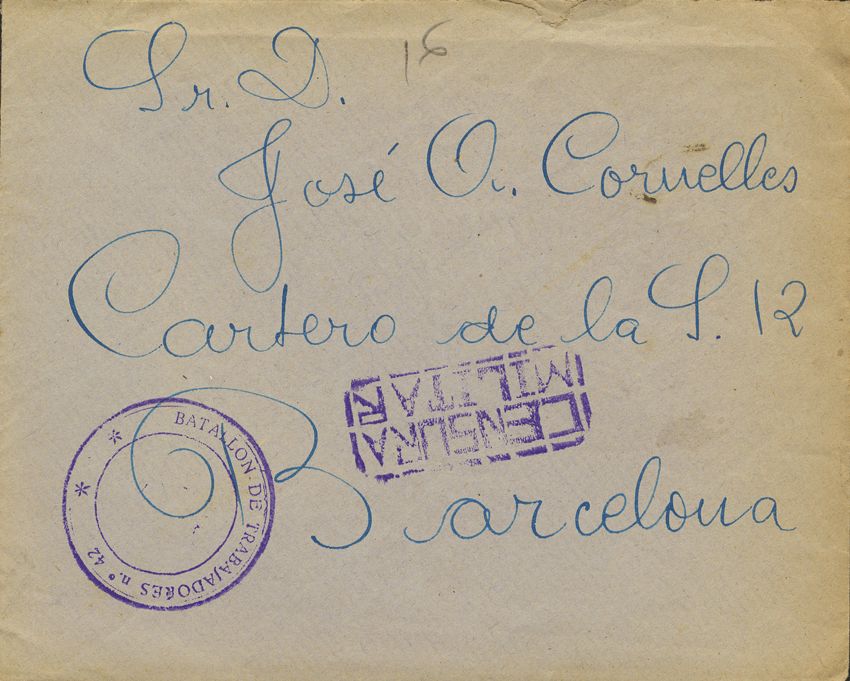 16
Sr. D.
José A. Cornelles
Cartero de la S. 12
Barcelona
CENSURA
MILITAR
BATALLON DE TRABAJADORES n.º 42